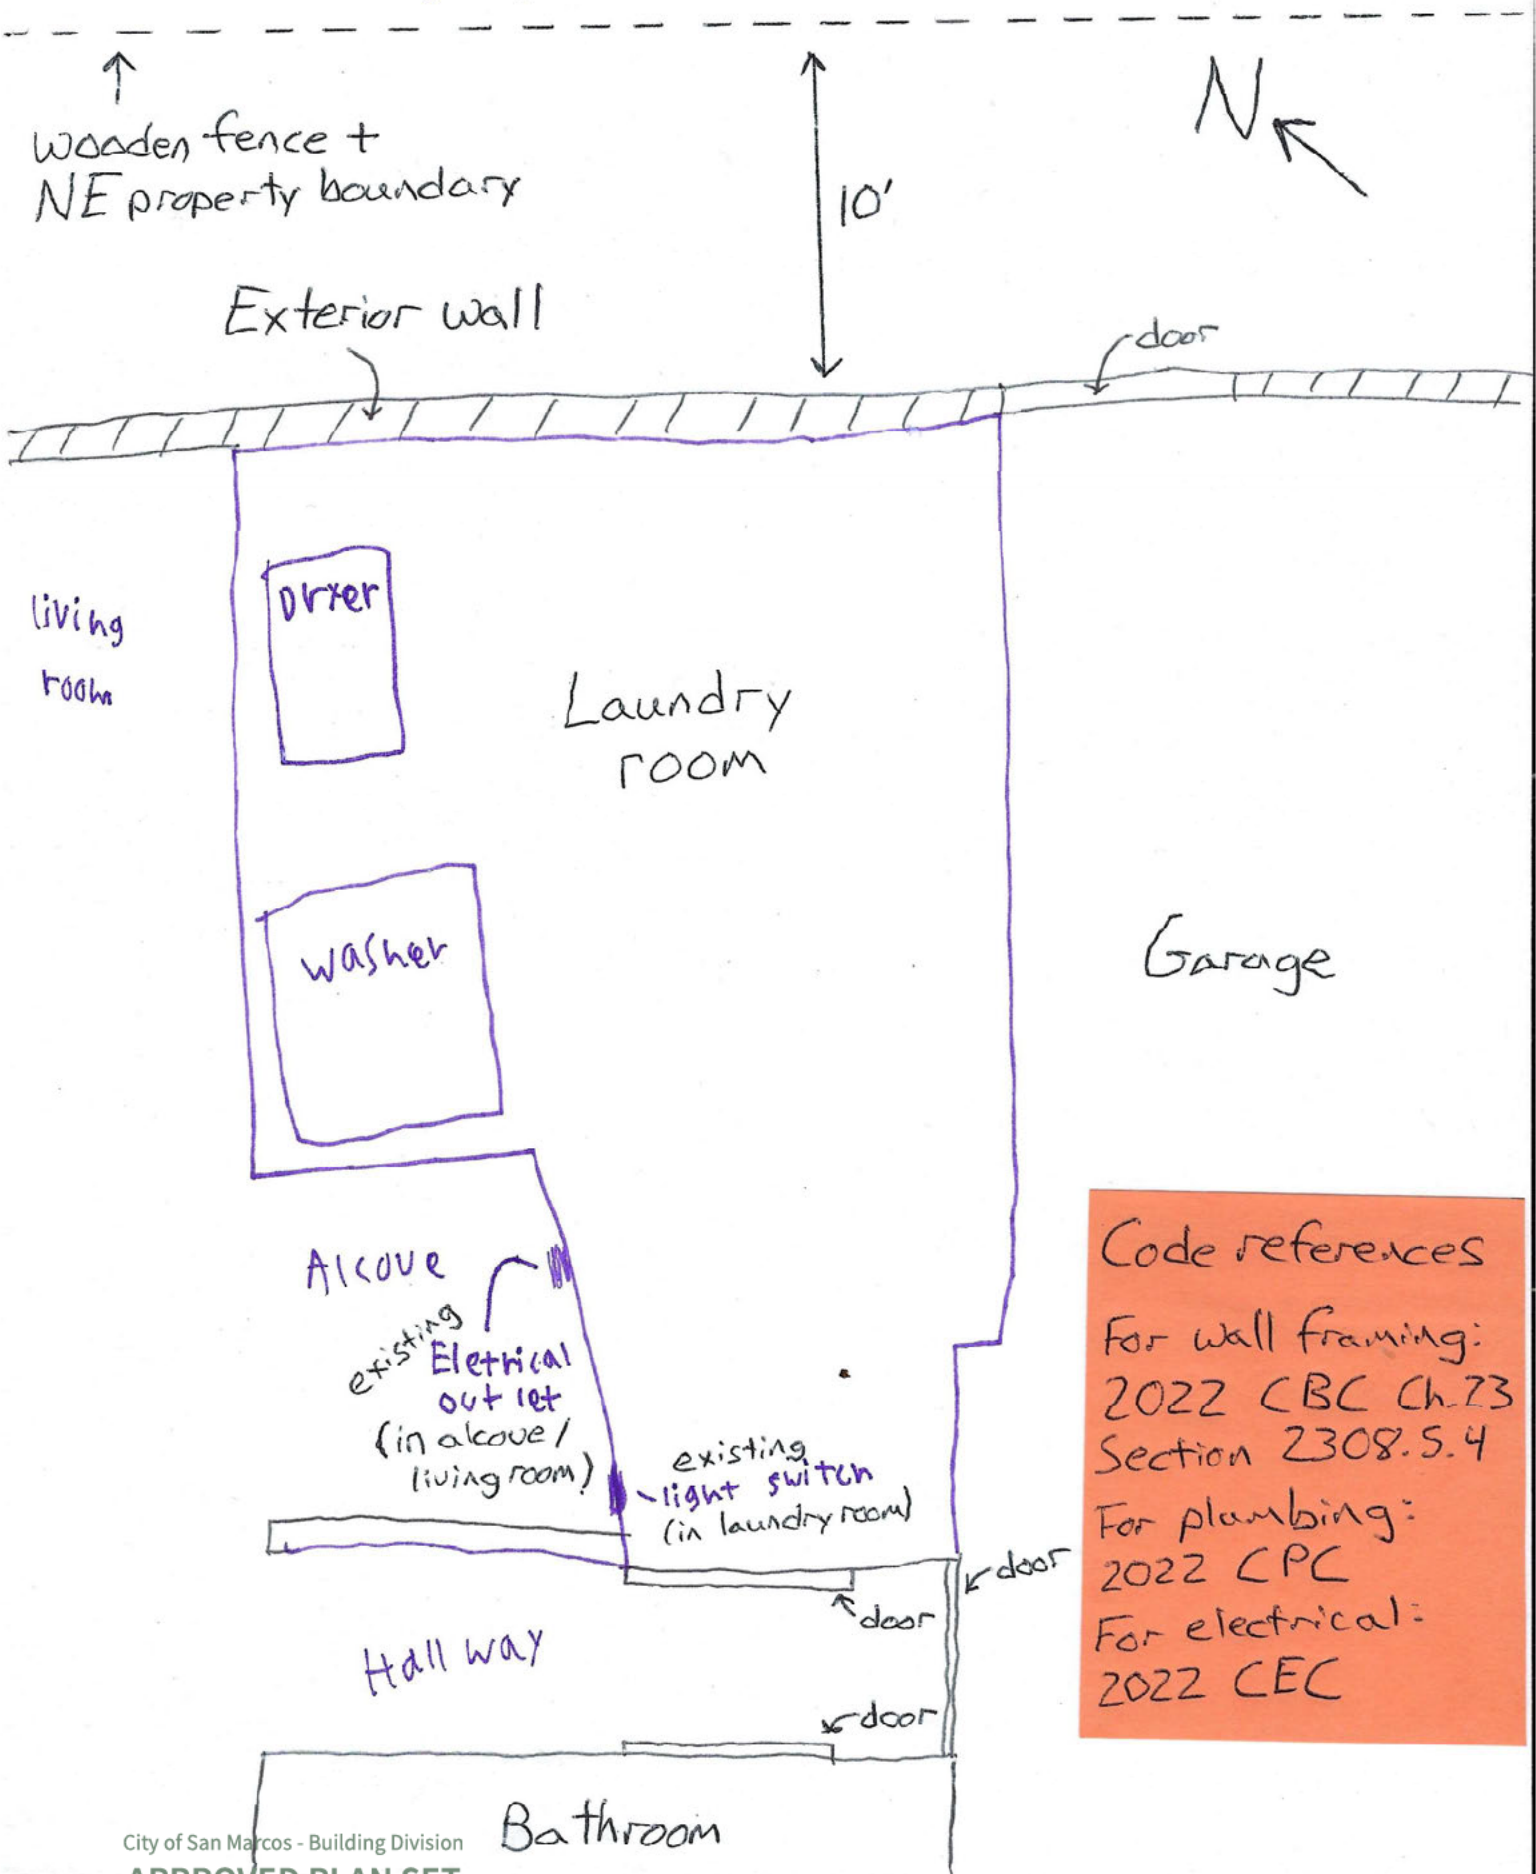 N
wooden fence +
NE property boundary
10'
Exterior wall
door
living
room
Dryer
Laundry
room
washer
Garage
Alcove
existing
Eletrical
outlet
(in alcove/
living room)
existing
light switch
(in laundry room)
door
door
Hallway
door
Bathroom
Code references
For wall framing:
2022 CBC Ch. 23
Section 2308.5.4
For plumbing:
2022 CPC
For electrical:
2022 CEC
City of San Marcos - Building Division
APPROVED PLAN SET